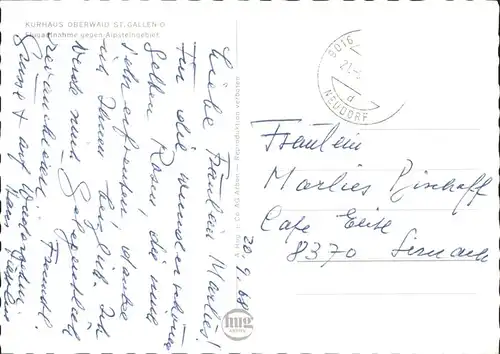 KURHAUS OBERWAID ST. GALLEN-O
Flugaufnahme gegen Alpsteingebiet
20.9.68
Liebe Fräulein Marlies!
Für die wunderschöne
gelben Rosen, die mich
sehr erfreuten, danke
ich Ihnen herzlich. Ich
werde mich gelegentlich
revanchieren. Freundl.
Grüsse + auf Wiedersehn
A. Hug & Co. AG
Reproduktion verboten
hug
9016
NEUDORF
d
Fräulein
Marlies Bischoff
Café
8370 Sirnach